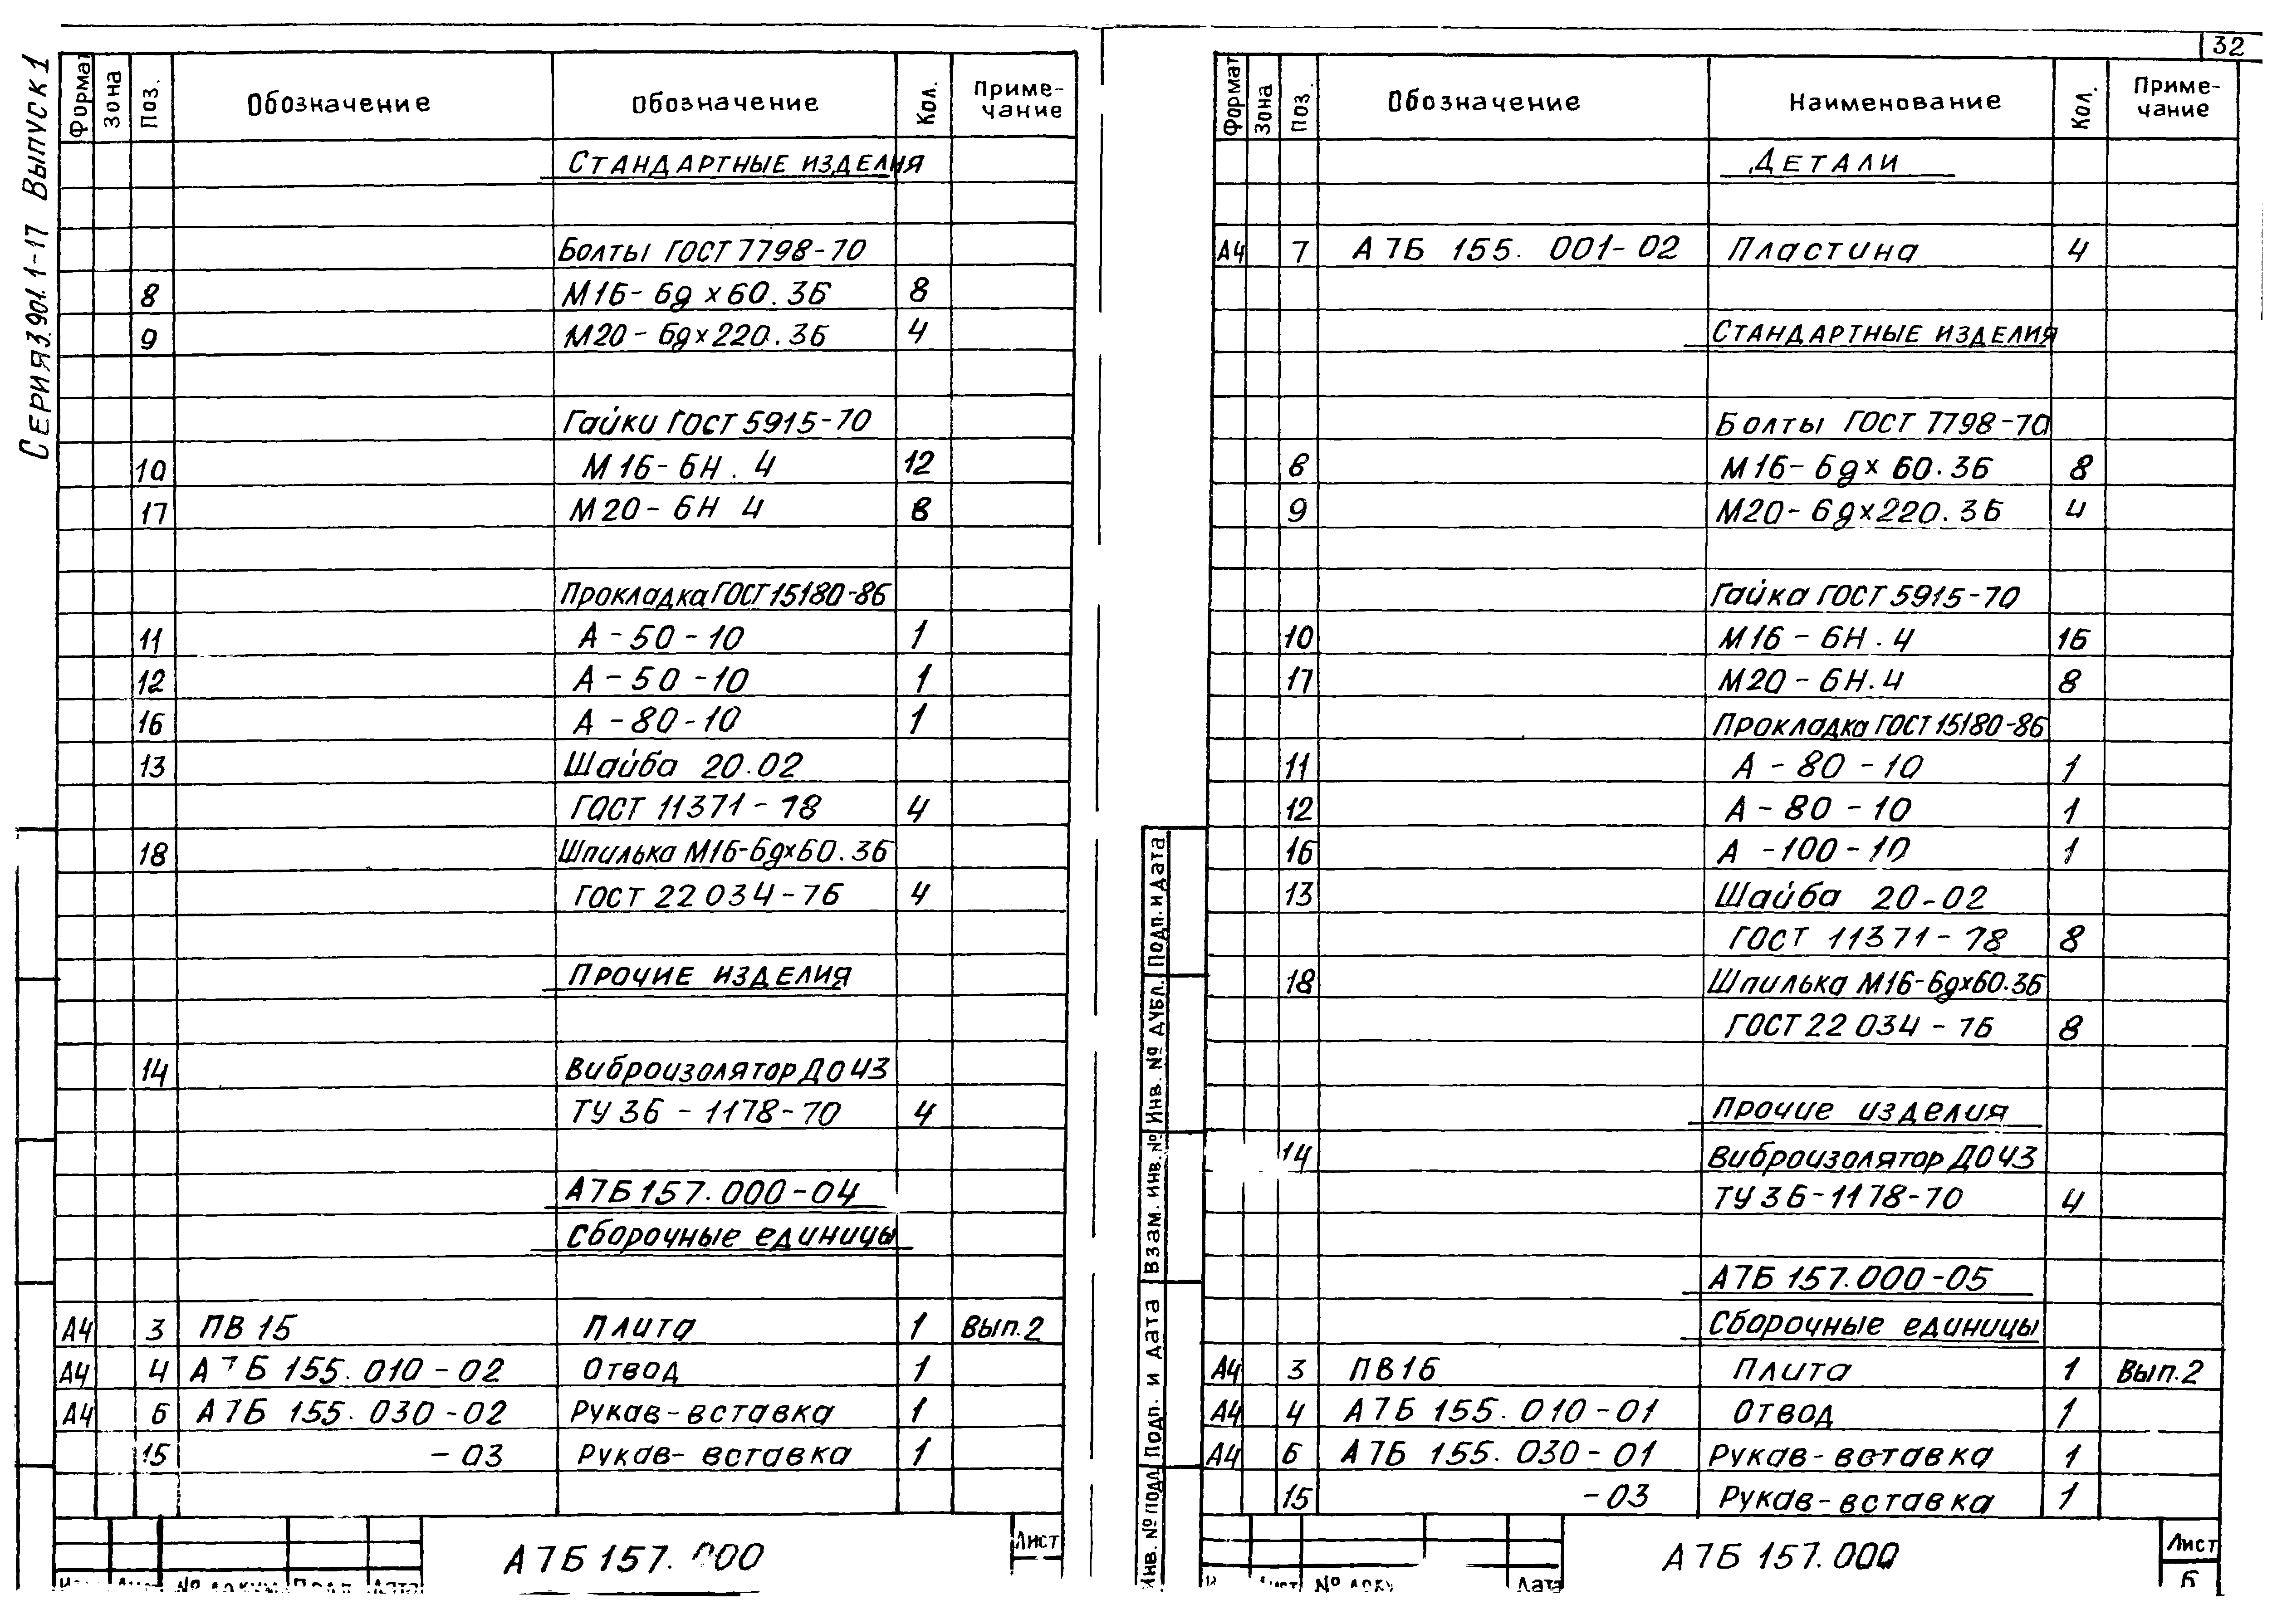 32
Серия 3.901.1-17 Выпуск 1
Формат Зона Поз. Обозначение Обозначение Кол. Приме-
чание
Стандартные изделия
Болты ГОСТ 7798-70
8 М16-6g х 60.36 8
9 М20-6gх220.36 4
Гайки ГОСТ 5915-70
10 М16-6Н.4 12
17 М20-6Н 4 8
Прокладка ГОСТ 15180-86
11 А-50-10 1
12 А-50-10 1
16 А-80-10 1
13 Шайба 20.02
ГОСТ 11371-78 4
18 Шпилька М16-6gх60.36
ГОСТ 22034-76 4
Прочие изделия
14 Виброизолятор ДО43
ТУ 36-1178-70 4
А7Б157.000-04
Сборочные единицы
А4 3 ПВ 15 Плита 1 Вып.2
А4 4 А7Б 155.010-02 Отвод 1
А4 6 А7Б 155.030-02 Рукав-вставка 1
15 -03 Рукав-вставка 1
А7Б157.000
Лист
№ докум Подп. Дата
Формат Зона Поз. Обозначение Наименование Кол. Приме-
чание
Детали
А4 7 А7Б 155.001-02 Пластина 4
Стандартные изделия
Болты ГОСТ 7798-70
8 М16-6gх 60.36 8
9 М20-6gх220.36 4
Гайка ГОСТ 5915-70
10 М16-6Н.4 16
17 М20-6Н.4 8
Прокладка ГОСТ 15180-86
11 А-80-10 1
12 А-80-10 1
16 А-100-10 1
13 Шайба 20-02
ГОСТ 11371-78 8
18 Шпилька М16-6gх60.36
ГОСТ 22034-76 8
Прочие изделия
14 Виброизолятор ДО43
ТУ 36-1178-70 4
А7Б 157.000-05
Сборочные единицы
А4 3 ПВ16 Плита 1 Вып.2
А4 4 А7Б 155.010-01 Отвод 1
А4 6 А7Б 155.030-01 Рукав-вставка 1
15 -03 Рукав-вставка 1
Инв. № подл. Подп. и дата Взам. инв. № Инв. № дубл. Подп. и дата
А7Б 157.000
Лист
6
Дата